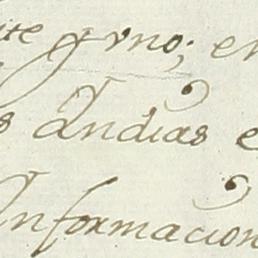 ite y vno; en
s Andias e
Informacion